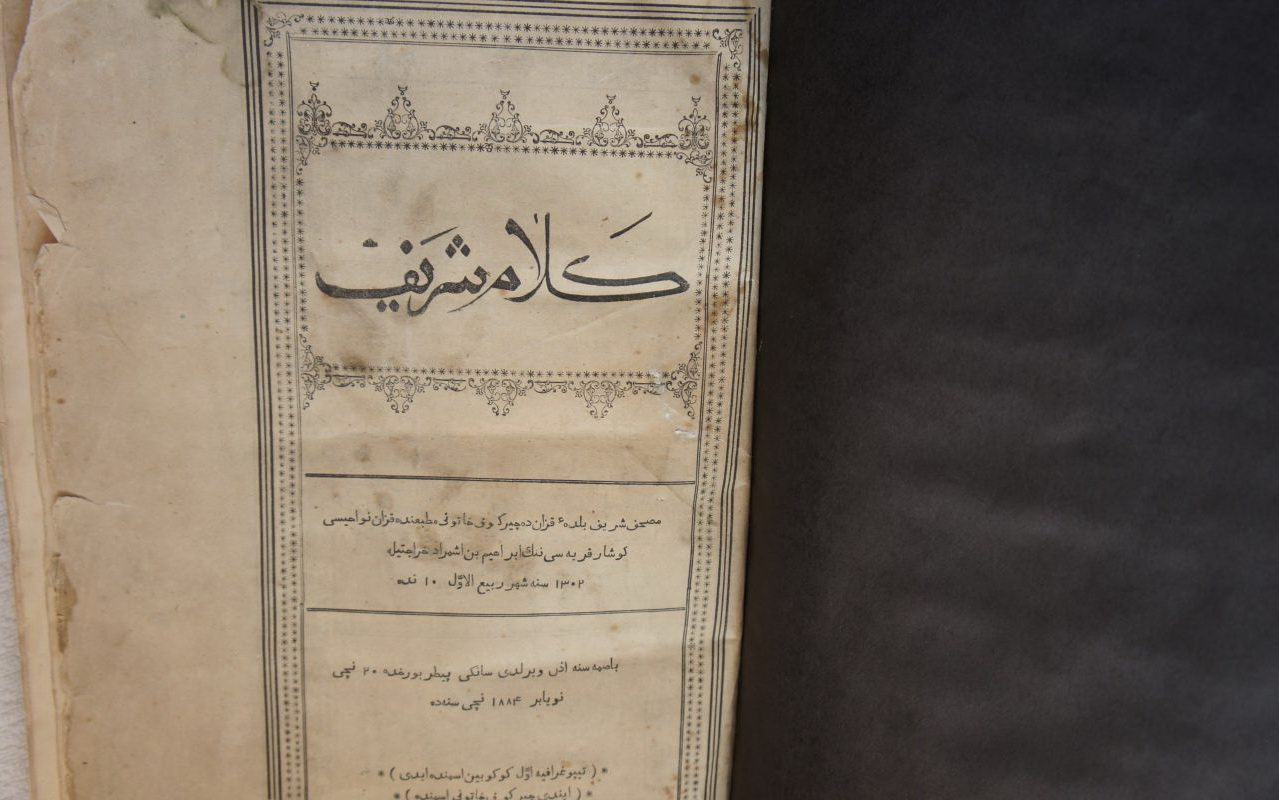 كلام شريف
مصحف شريف بلدهء قزان ده چيركوفا خاتونى مطبعه‌نده قزان نواحيسى
كوشار قريه سى ننك ابراهيم بن اشمراد خراجتيله
١٣٠٢ سنه شهر ربيع الاوّل ١٠ نده
باصمه سنه اذن ويرلدى سانكى پيطربورغده ٢٠ نچى
نويابر ١٨٨۴ نچى سنه ده
* ( تيپوغرافيه اوّل كوكوبين اسمنده ايدى ) *
* ( ايندى چيركوفا خاتونى اسمنده ) *